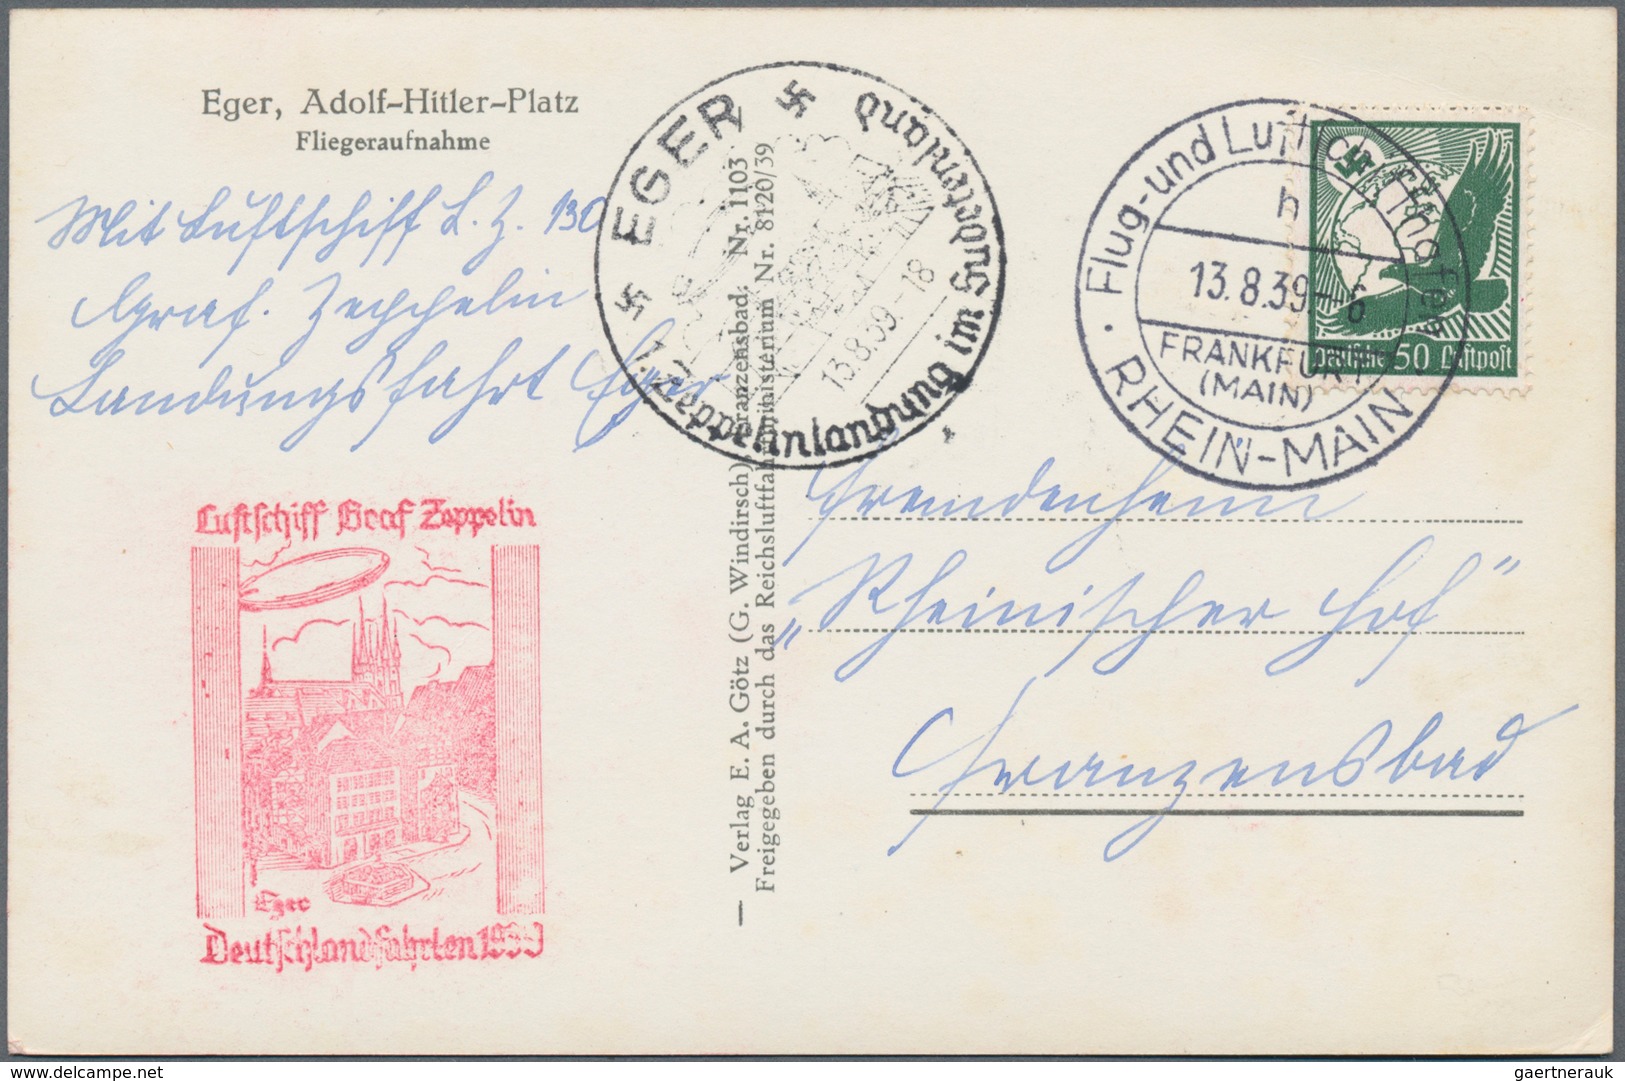 Eger, Adolf-Hitler-Platz
Fliegeraufnahme
Mit Luftschiff L. Z. 130
Graf. Zeppelin
Landungsfahrt Eger
EGER
1. Zeppelinlandung im Sudetenland
13.8.39.-18
Flug- und Luftschiffhafen
h
13.8.39.-6
FRANKFURT
(MAIN)
RHEIN-MAIN
Deutsche 50 Luftpost
Luftschiff Graf Zeppelin
Eger
Deutschlandfahrten 1939
— Verlag E. A. Götz (G. Windirsch), Franzensbad. Nr. 1103
Freigegeben durch das Reichsluftfahrtministerium Nr. 8120/39
Fremdenheim
„Rheinischer Hof"
Franzensbad
www.delcampe.net
gaertnerauk